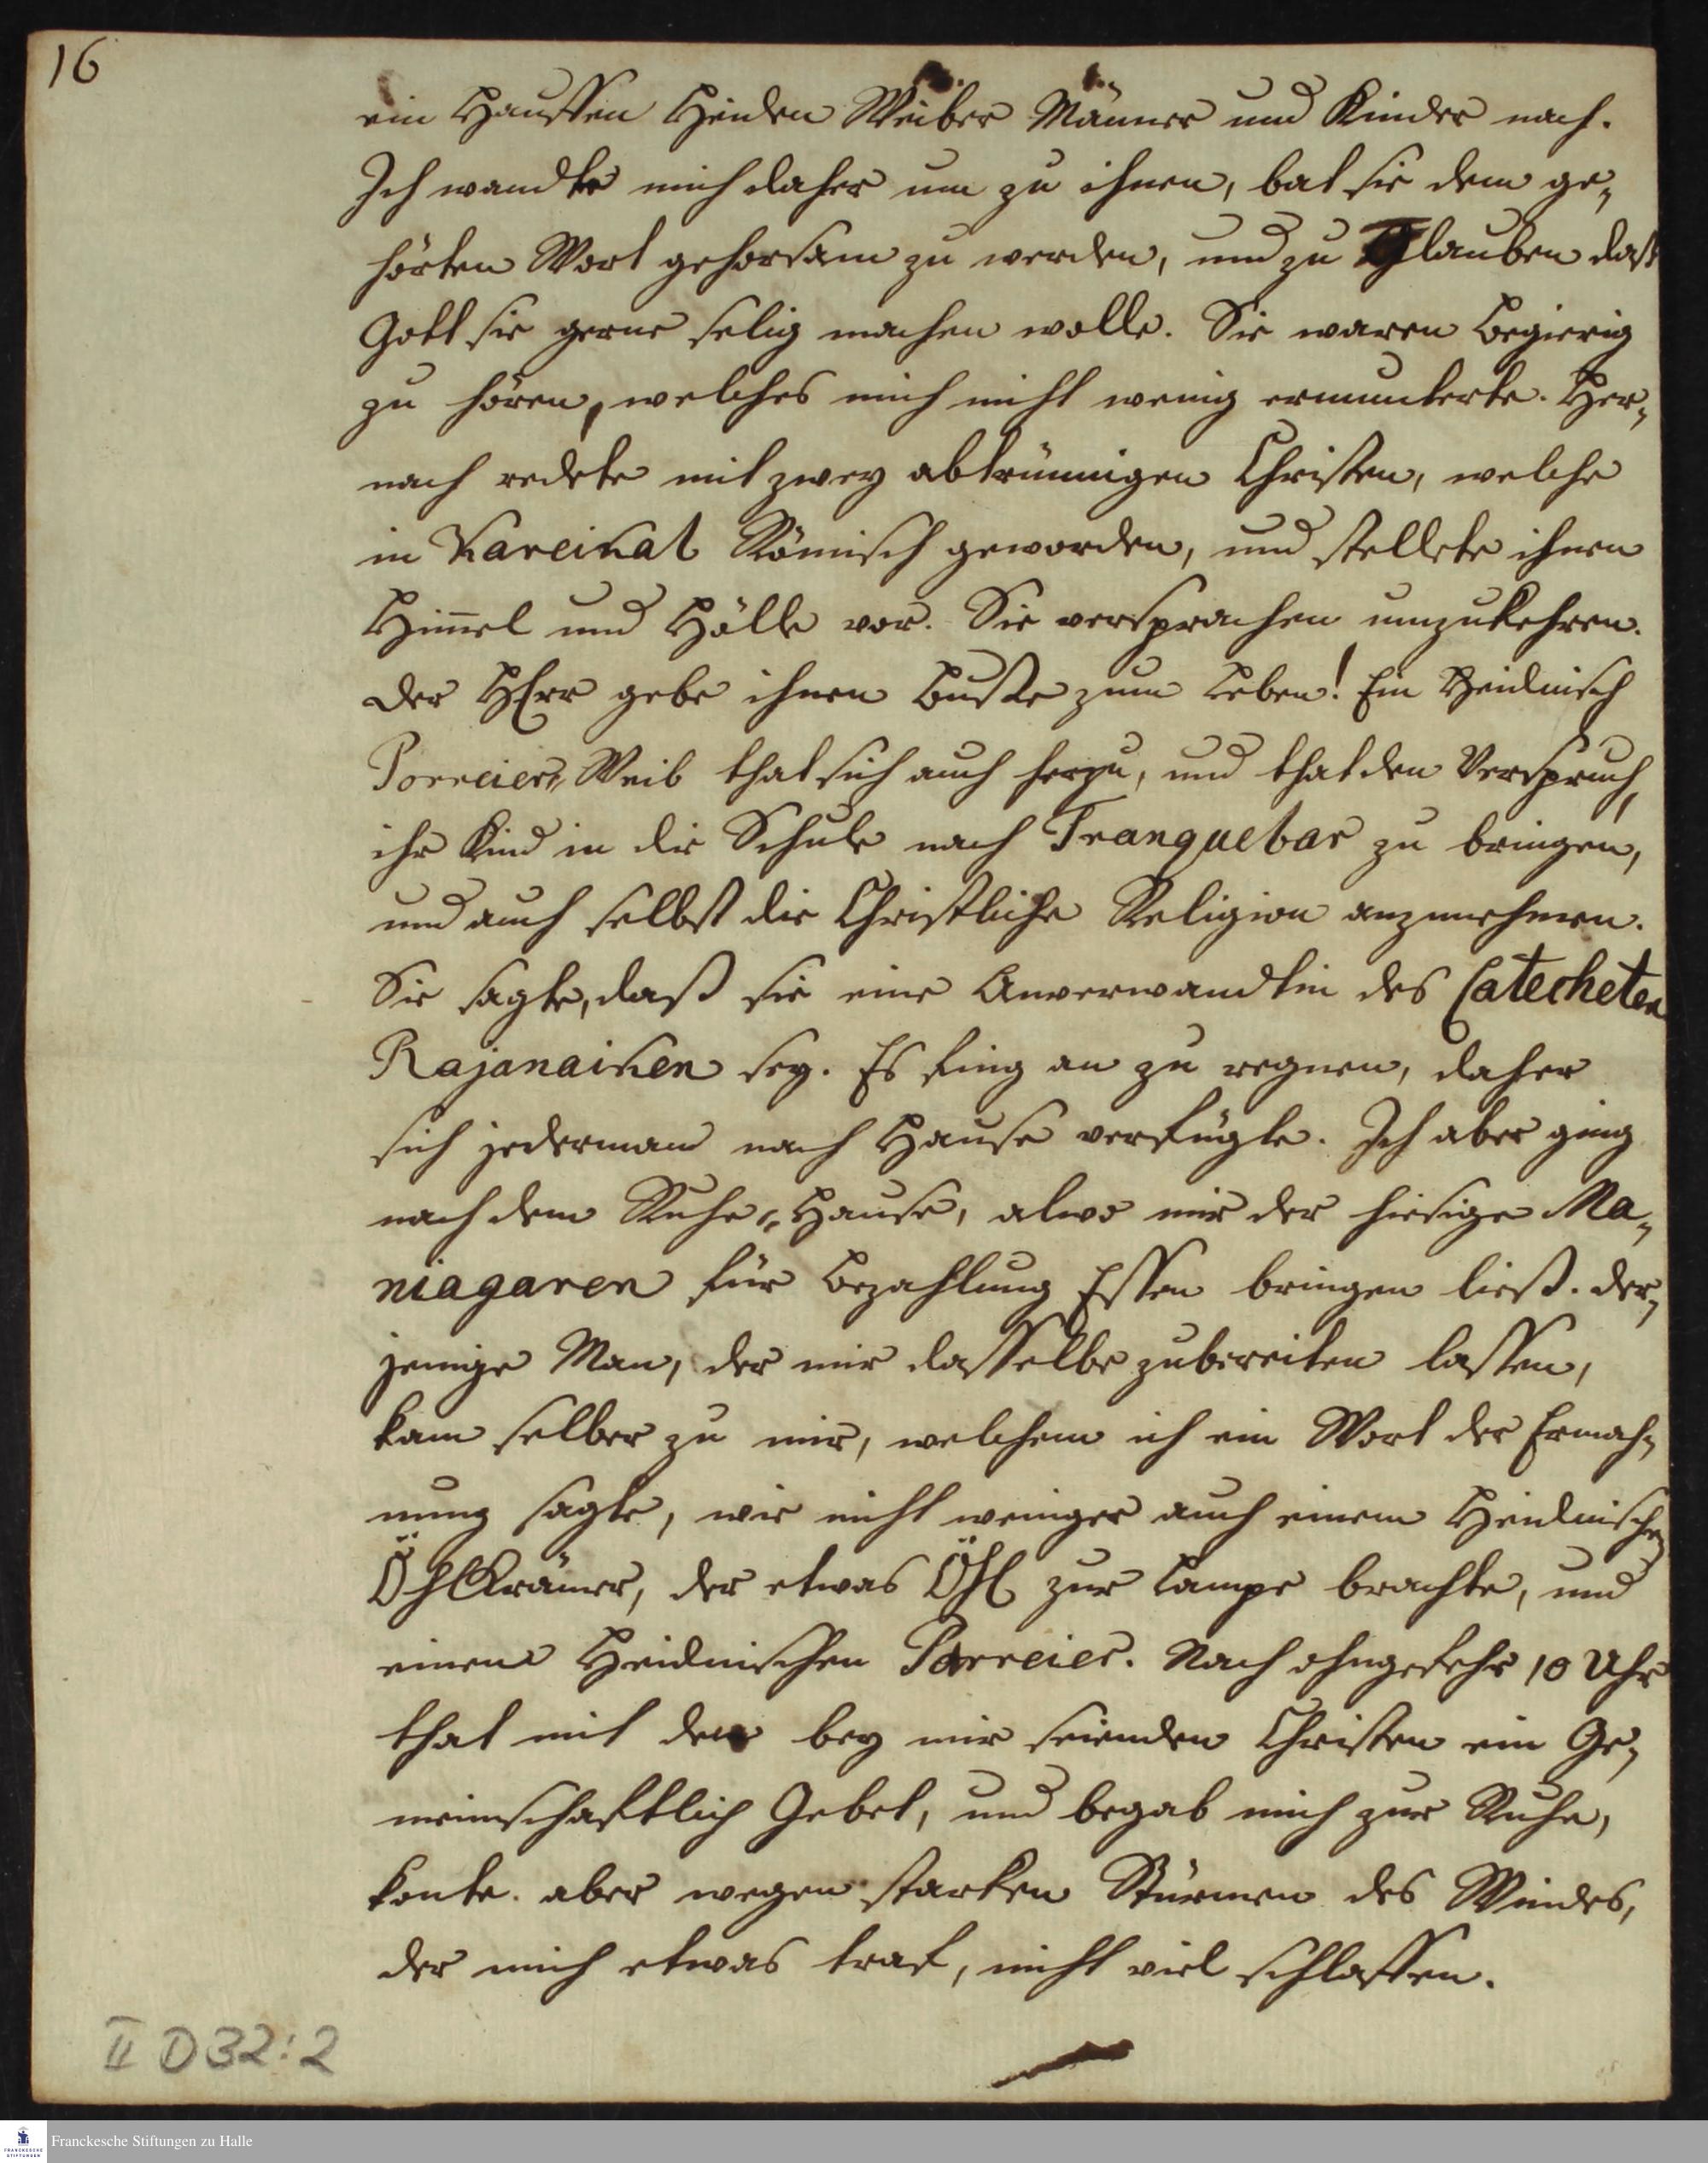 16
ein Hauffen Heiden Weiber Männer und Kinder nach.
Ich wandte mich daher um zu ihnen, bat sie dem ge-
hörten Wort gehorsam zu werden, und zu Glauben daß
Gott sie gerne selig machen wolle. Sie waren begierig
zu hören, welches mich nicht wenig ermunterte. Her-
nach redete mit zwey abtrünnigen Christen, welche
in Kareikal Römisch geworden, und stellete ihnen
Him̄el und Hölle vor. Sie versprachen umzukehren.
der HErr gebe ihnen Buße zum Leben! Ein Heidnisch
Porreier, Weib that sich auch herzu, und that den Verspruch,
ihr Kind in die Schule nach Tranquebar zu bringen,
und auch selbst die Christliche Religion anzunehmen.
Sie sagte, daß sie eine Anverwandtin des Catecheten
Rajanaiken sey. Es fing an zu regnen, daher
sich jederman nach Hause verfügte. Ich aber ging
nach dem Ruhe-Hause, alwo mir der hiesige Ma-
niagaren für bezahlung Essen bringen ließ. der-
jenige Man, der mir dasselbe zubereiten lassen,
kam selber zu mir, welchem ich ein Wort der Ermah-
nung sagte, wie nicht weniger auch einem Heidnischen
ÖhlKrämer, der etwas Öhl zur Lampe brachte, und
einem Heidnischen Parreier. Nach ohngefehr 10 Uhr
that mit den bey mir seienden Christen ein Ge-
meinschaftlich Gebet, und begab mich zur Ruhe,
konte. aber wegen starken Stürmen des Windes,
der mich etwas traf, nicht viel schlaffen.
II D32:2
FRANCKESCHE STIFTUNGEN
Franckesche Stiftungen zu Halle